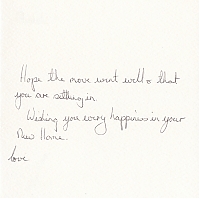 Hope the move went well & that
you are settling in.
Wishing you every happiness in your
New Home.
love